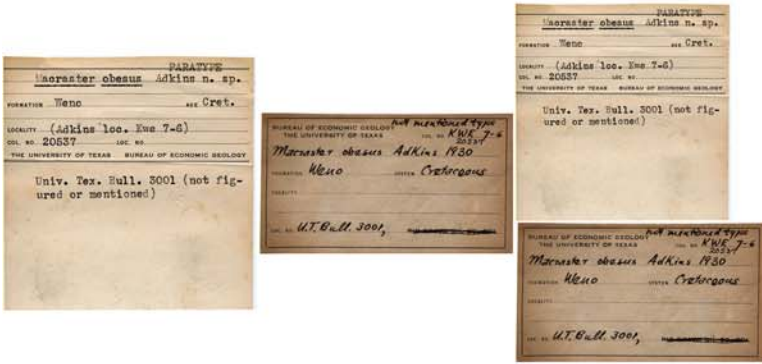 PARATYPE
Macraster obesus Adkins n. sp.
FORMATION Weno AGE Cret.
LOCALITY (Adkins loc. Kwe 7-6)
COL. NO. 20537 LOC. NO.
THE UNIVERSITY OF TEXAS BUREAU OF ECONOMIC GEOLOGY
Univ. Tex. Bull. 3001 (not fig-
ured or mentioned)
not mentioned type
BUREAU OF ECONOMIC GEOLOGY
THE UNIVERSITY OF TEXAS COL. NO. KWE 7-6
20537
Macraster obesus Adkins 1930
FORMATION Weno SYSTEM Cretaceous
LOCALITY
LOC. NO. U.T. Bull. 3001,
PARATYPE
Macraster obesus Adkins n. sp.
FORMATION Weno AGE Cret.
LOCALITY (Adkins loc. Kwe 7-6)
COL. NO. 20537 LOC. NO.
THE UNIVERSITY OF TEXAS BUREAU OF ECONOMIC GEOLOGY
Univ. Tex. Bull. 3001 (not fig-
ured or mentioned)
not mentioned type
BUREAU OF ECONOMIC GEOLOGY
THE UNIVERSITY OF TEXAS COL. NO. KWE 7-6
20537
Macraster obesus Adkins 1930
FORMATION Weno SYSTEM Cretaceous
LOCALITY
LOC. NO. U.T. Bull. 3001,